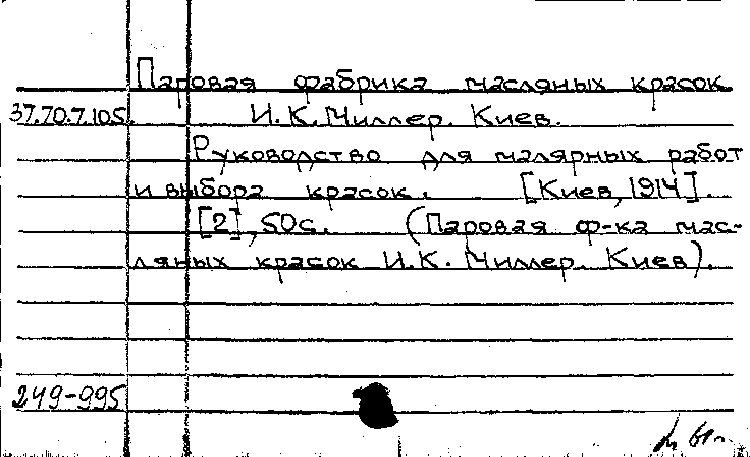 Паровая фабрика масляных красок
37.70.7.105. И.К. Миллер. Киев.
Руководство для малярных работ
и выбора красок. [Киев, 1914].
[2], 50с. (Паровая ф-ка мас-
ляных красок И.К. Миллер. Киев).
249-995